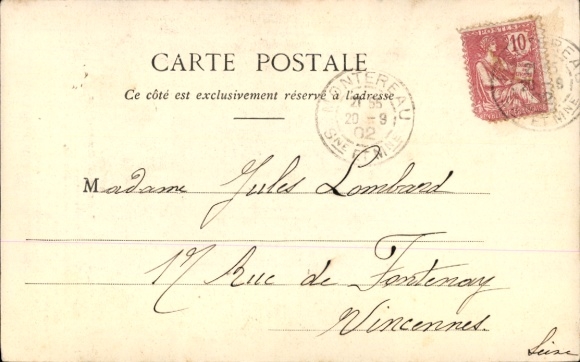 CARTE POSTALE
Ce côté est exclusivement réservé à l'adresse
POSTES
10
MONTEREAU
21 55
20 - 9
02
SNE ET MNE
Madame Jules Lombard
17 Rue de Fontenay
Vincennes.
Seine